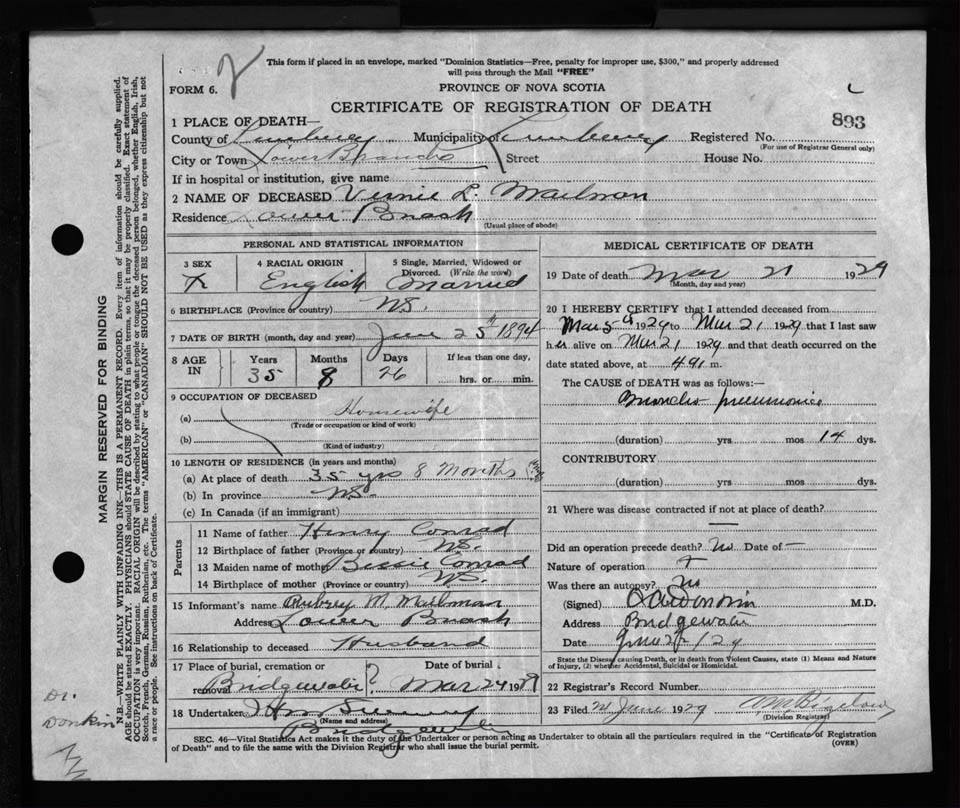 This form if placed in an envelope, marked "Dominion Statistics—Free, penalty for improper use, $300," and properly addressed
will pass through the Mail "FREE"
FORM 6.
PROVINCE OF NOVA SCOTIA
CERTIFICATE OF REGISTRATION OF DEATH
893
1 PLACE OF DEATH—
County of Lunenburg Municipality of Lunenburg Registered No.
(For use of Registrar General only)
City or Town Lower Branch Street House No.
If in hospital or institution, give name
2 NAME OF DECEASED Vernie L. Mailman
Residence Lower Branch
(Usual place of abode)
PERSONAL AND STATISTICAL INFORMATION
3 SEX 4 RACIAL ORIGIN 5 Single, Married, Widowed or Divorced. (Write the word)
F English Married
6 BIRTHPLACE (Province or country) N.S.
7 DATE OF BIRTH (month, day and year) June 25th 1894
8 AGE IN Years Months Days If less than one day,
35 8 26 hrs. or min.
9 OCCUPATION OF DECEASED
(a) Housewife
(Trade or occupation or kind of work)
(b)
(Kind of industry)
10 LENGTH OF RESIDENCE (in years and months)
(a) At place of death 35 yrs 8 Months
(b) In province N.S.
(c) In Canada (if an immigrant)
Parents
11 Name of father Henry Conrad
12 Birthplace of father (Province or country) N.S.
13 Maiden name of mother Bessie Conrad
14 Birthplace of mother (Province or country) N.S.
15 Informant's name Aubrey M. Mailman
Address Lower Branch
16 Relationship to deceased Husband
17 Place of burial, cremation or removal Date of burial
Bridgewater Mar 24 1929
18 Undertaker
(Name and address)
Bridgewater
MEDICAL CERTIFICATE OF DEATH
19 Date of death Mar 21 1929
(Month, day and year)
20 I HEREBY CERTIFY that I attended deceased from
Mar 5th 1929 to Mar 21 1929 that I last saw
her alive on Mar 21 1929 and that death occurred on the
date stated above, at m.
The CAUSE OF DEATH was as follows:—
Broncho pneumonia
(duration) yrs mos 14 dys.
CONTRIBUTORY
(duration) yrs mos dys.
21 Where was disease contracted if not at place of death?
—
Did an operation precede death? No Date of —
Nature of operation
Was there an autopsy? No
(Signed) Donkin M.D.
Address Bridgewater
Date
State the Disease causing Death, or in death from Violent Causes, state (1) Means and Nature
of Injury, (2) whether Accidental, Suicidal or Homicidal.
22 Registrar's Record Number
23 Filed 21 June 1929
(Division Registrar)
SEC. 46—Vital Statistics Act makes it the duty of the Undertaker or person acting as Undertaker to obtain all the particulars required in the "Certificate of Registration
of Death" and to file the same with the Division Registrar who shall issue the burial permit.
(OVER)
MARGIN RESERVED FOR BINDING
N.B.—WRITE PLAINLY WITH UNFADING INK—THIS IS A PERMANENT RECORD. Every item of information should be carefully supplied.
AGE should be stated EXACTLY. PHYSICIANS should STATE CAUSE OF DEATH in plain terms, so that it may be properly classified. Exact statement of
OCCUPATION is very important. RACIAL ORIGIN will be described by stating to what people or tongue the deceased person belonged, whether English, Irish,
Scotch, French, German, Russian, Ruthenian, etc. The terms "AMERICAN" or "CANADIAN" SHOULD NOT BE USED as they express citizenship but not
a race or people. See instructions on back of Certificate.
Dr.
Donkin